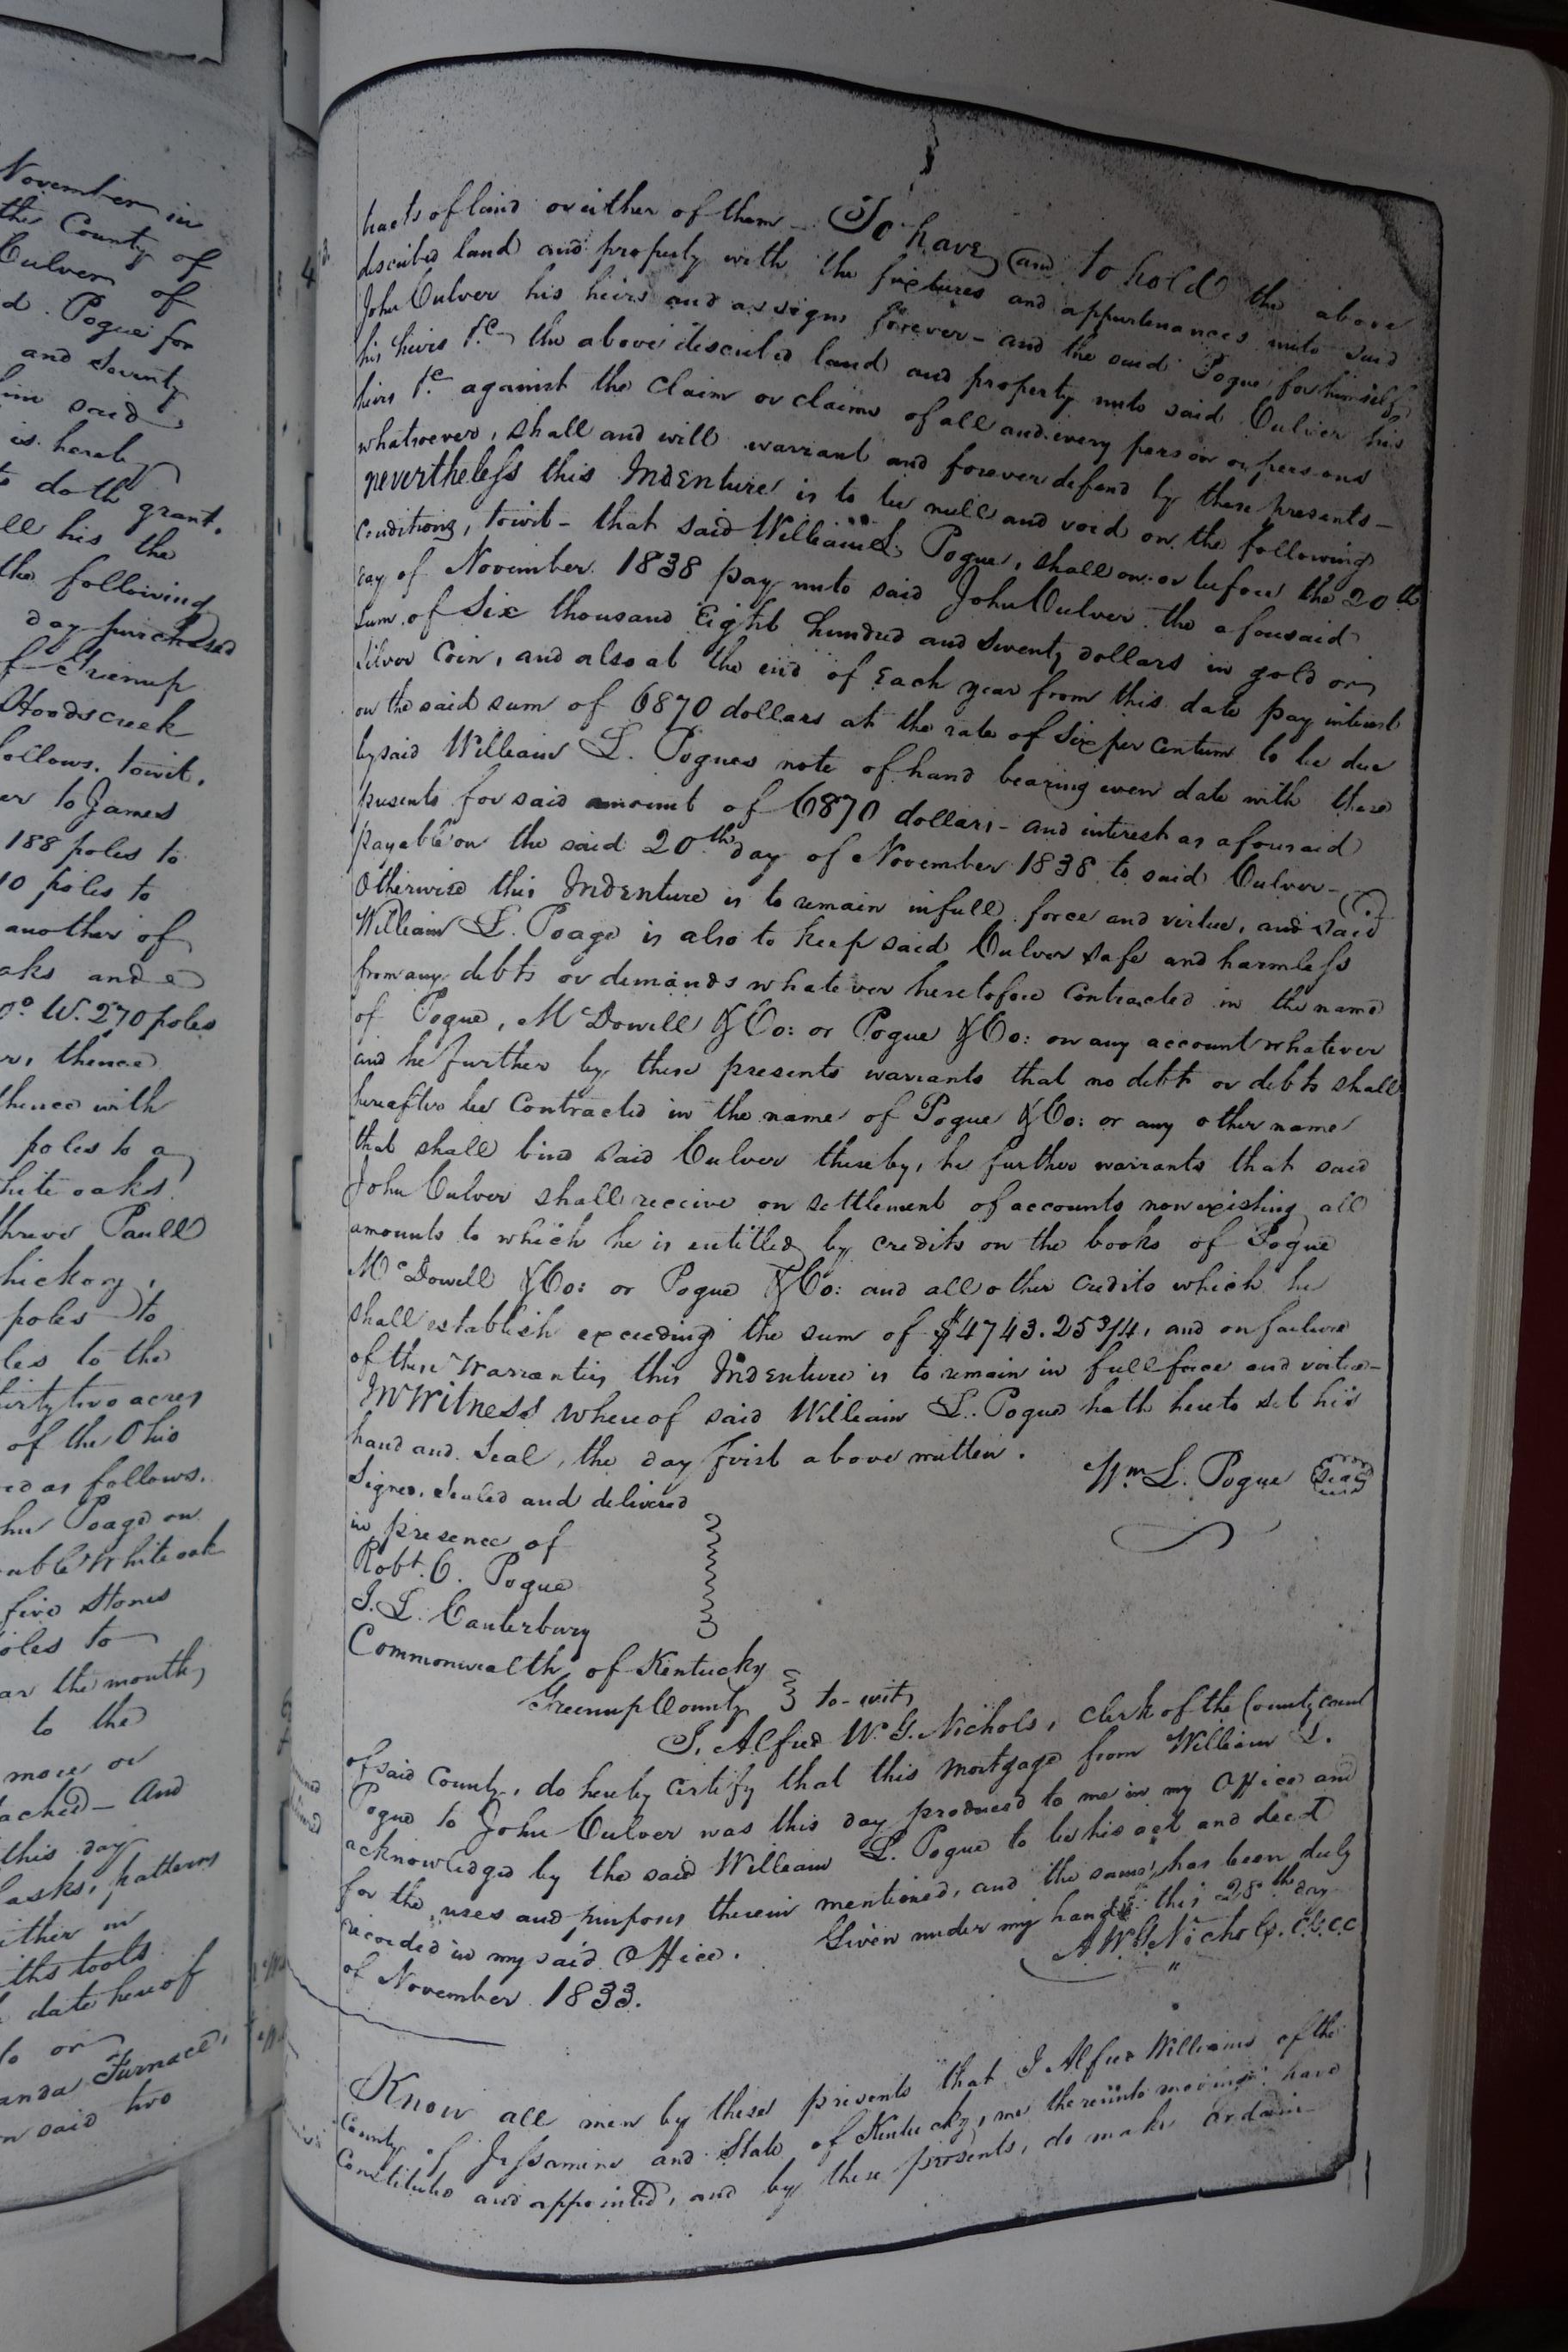 November in
the County of
Culver of
d. Pogue for
and Seventy
him said
is hereby
to doth grant,
all his the
the following
day purchased
of Greenup
Hoodscreek
follows. towit.
er to James
188 poles to
10 poles to
another of
oaks and a
0° W. 270 poles
r, thence
thence with
poles to a
white oaks
threw Paull
hickory,
poles to
les to the
thirty two acres
of the Ohio
ed as follows.
hn Poage on
ouble White oak
five Stones
poles to
ar the mouth,
to the
more or
ached — And
this day
lasks, patterns
either in
iths tools
date hereof
to or
anda Furnace,
n said two
tracts of land or either of them — To have and to hold the above
discribed land and property with the fixtures and appurtenances unto said
John Culver his heirs and assigns forever — and the said Pogue for himself
his heirs &c the above discribed land and property unto said Culver his
heirs &c against the claim or claims of all and every person or persons
whatsoever, shall and will warrant and forever defend by these presents —
nevertheless this Indenture is to be null and void on the following
conditions, towit — that said William L. Pogue, shall on or before the 20th
day of November 1838 pay unto said John Culver the afousaid
sum of Six thousand Eight hundred and Seventy dollars in gold or
silver Coin, and also at the end of Each year from this date pay interest
on the said sum of 6870 dollars at the rate of Six per centum to be due
by said William L. Pogues note of hand bearing even date with these
presents for said amount of 6870 dollars — and interest as afousaid
payable on the said 20th day of November 1838 to said Culver —
Otherwise this Indenture is to remain in full force and virtue, and said
William L. Poage is also to keep said Culver safe and harmless
from any debts or demands whatever heretofore Contracted in the name
of Pogue, McDowell & Co: or Pogue & Co: on any account whatever
and he further by these presents warrants that no debt or debts shall
hereafter be Contracted in the name of Pogue & Co: or any other name
that shall bind said Culver thereby, he further warrants that said
John Culver shall receive on settlement of accounts now existing all
amounts to which he is entitled by credits on the books of Pogue
McDowell & Co: or Pogue & Co: and all other credits which he
shall establish exceeding the sum of $4743.25 3/4, and on failure
of these Warranties this Indenture is to remain in full force and virtue —
In Witness whereof said William L. Pogue hath hereto set his
hand and Seal, the day first above written.
Wm L. Pogue Seal
Signed, Sealed and delivered
in presence of
Robt. C. Pogue
J. L. Canterbury
Commonwealth of Kentucky
Greenup County to-wit,
I, Alfred W. G. Nichols, Clerk of the County court
of said County, do hereby certify that this mortgage from William L.
Pogue to John Culver was this day produced to me in my Office and
acknowledged by the said William L. Pogue to be his act and deed
for the uses and purposes therein mentioned, and the same has been duly
recorded in my said Office. Given under my hand this 28th day
of November 1833.
A. W. G. Nichols. C.G.C.C.
Know all men by these presents that I Alfred Williams of the
County of Jessamine and State of Kentucky, me thereunto moving have
Constituted and appointed, and by these presents, do make Ordain